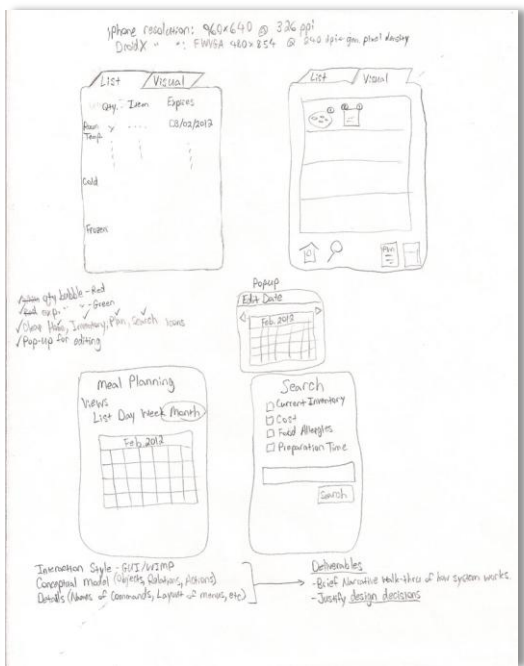 iphone resolution: 960x640 @ 326 ppi
DroidX " ": FWVGA 480x854 @ 240 dpi gen. pixel density
List Visual
Qty. Item Expires
Room Temp 03/02/2012
Cold
Frozen
List Visual
qty bubble - Red
exp. " - Green
✓Clear Home, Inventory, Plan, Search icons
✓Pop-up for editing
Popup
Edit Date
Feb. 2012
Meal Planning
Views
List Day Week Month
Feb. 2012
Search
Current Inventory
Cost
Food Allergies
Preparation Time
Search
Interaction Style - GUI/WIMP
Conceptual Model (Objects, Relations, Actions)
Details (Names of Commands, Layout of menus, etc)
Deliverables
-Brief Narrative walk-thru of how system works
-Justify design decisions